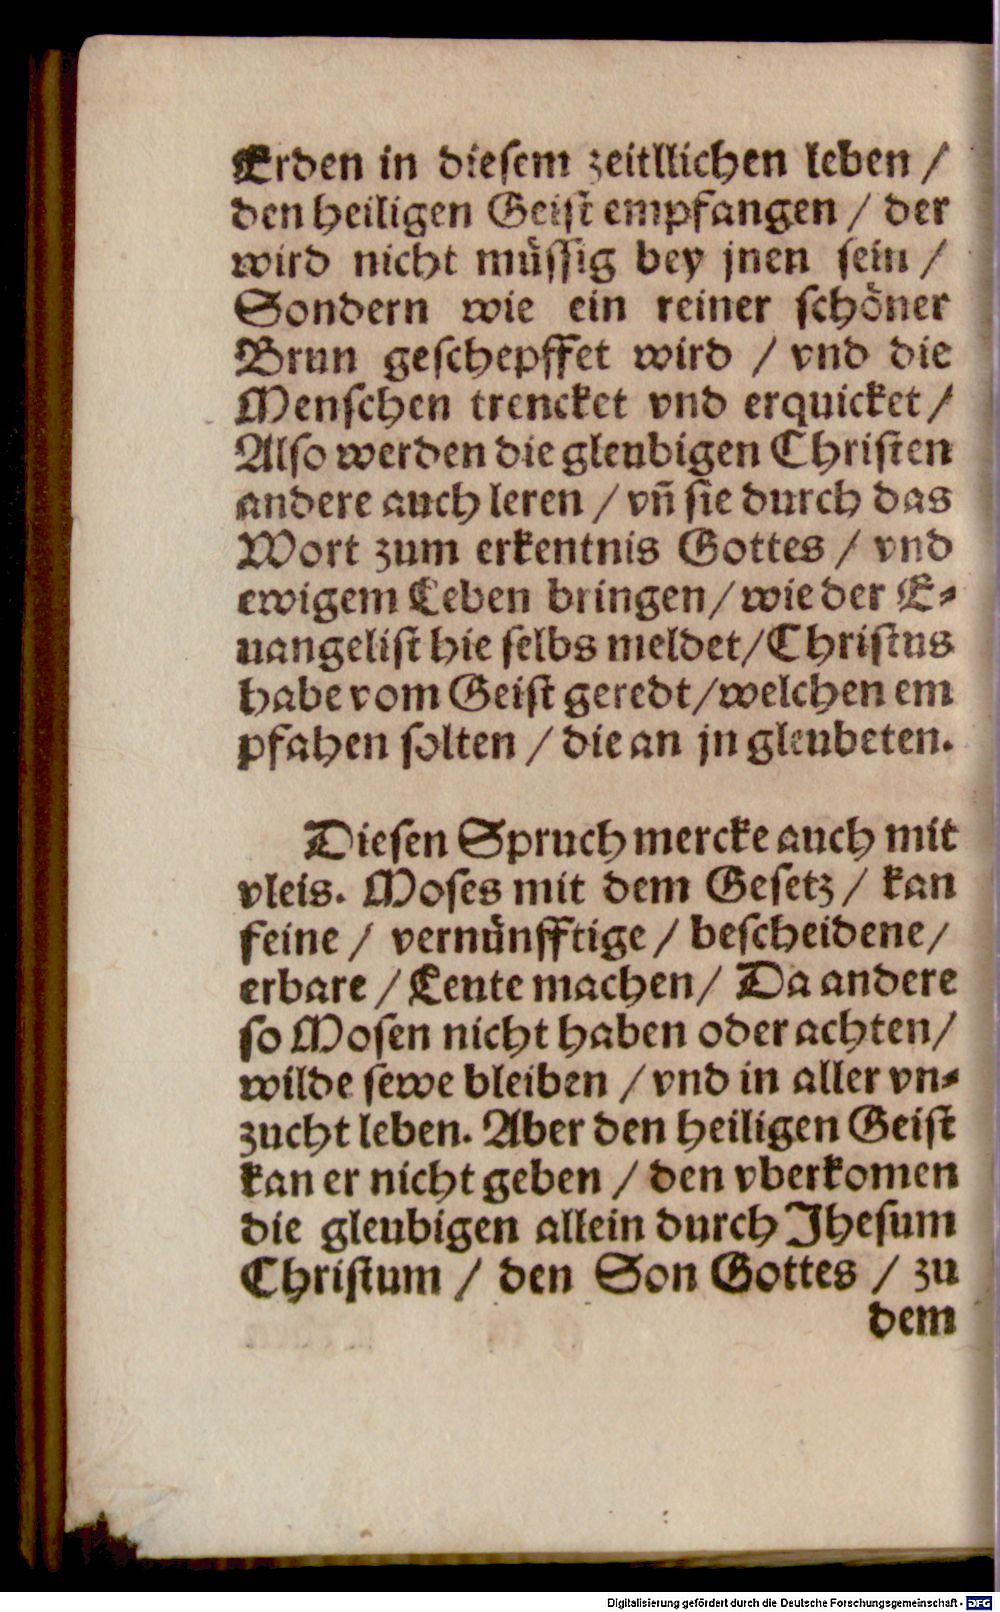 Erden in dieſem zeitllichen leben /
den heiligen Geiſt empfangen / der
wird nicht müſſig bey jnen ſein /
Sondern wie ein reiner ſchöner
Brun geſchepffet wird / vnd die
Menſchen trencket vnd erquicket /
Alſo werden die gleubigen Chriſten
andere auch leren / vñ ſie durch das
Wort zum erkentnis Gottes / vnd
ewigem Leben bringen / wie der E⸗
uangeliſt hie ſelbs meldet / Chriſtus
habe vom Geiſt geredt / welchen em
pfahen ſolten / die an jn gleubeten.
Dieſen Spruch mercke auch mit
vleis. Moſes mit dem Geſetz / kan
feine / vernünfftige / beſcheidene /
erbare / Leute machen / Da andere
ſo Moſen nicht haben oder achten /
wilde ſewe bleiben / vnd in aller vn⸗
zucht leben. Aber den heiligen Geiſt
kan er nicht geben / den vberkomen
die gleubigen allein durch Jheſum
Chriſtum / den Son Gottes / zu
dem
Digitalisierung gefördert durch die Deutsche Forschungsgemeinschaft - DFG